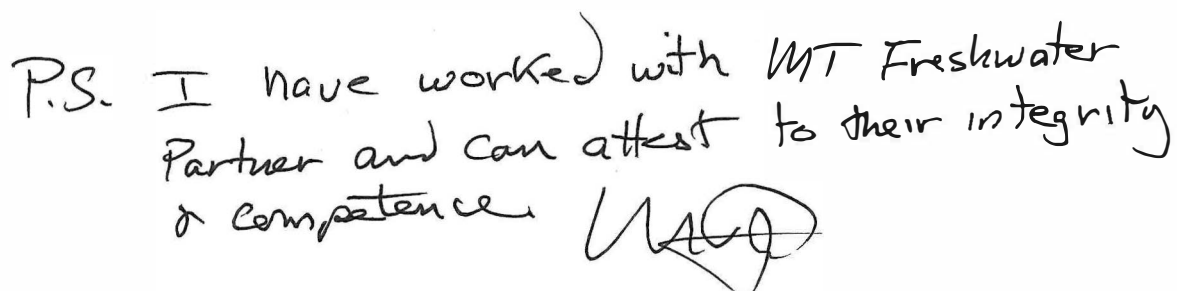 P.S. I have worked with MT Freshwater
Partner and can attest to their integrity
& competence.